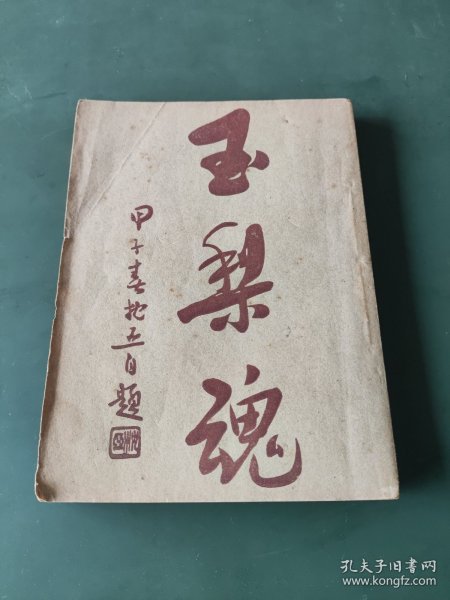 玉梨魂
甲子春枕亚自题
孔夫子旧书网
www.kongfz.com